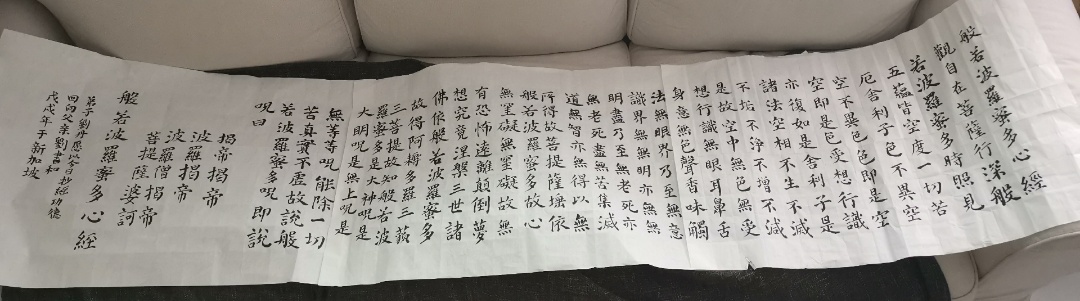 般若波羅蜜多心經
觀自在菩薩行深般
若波羅蜜多時照見
五蘊皆空度一切苦
厄舍利子色不異空
空不異色色即是空
空即是色受想行識
亦復如是舍利子是
諸法空相不生不滅
不垢不淨不增不減
是故空中無色無受
想行識無眼耳鼻舌
身意無色聲香味觸
法無眼界乃至無意
識界無無明亦無無
明盡乃至無老死亦
無老死盡無苦集滅
道無智亦無得以無
所得故菩提薩埵依
般若波羅蜜多故心
無罣礙無罣礙故無
有恐怖遠離顛倒夢
想究竟涅槃三世諸
佛依般若波羅蜜多
故得阿耨多羅三藐
三菩提故知般若波
羅蜜多是大神呪是
大明呪是無上呪是
無等等呪能除一切
苦真實不虛故說般
若波羅蜜多呪即說
呪曰
揭帝揭帝
波羅揭帝
波羅僧揭帝
菩提薩婆訶
般若波羅蜜多心經
弟子劉丹以今日抄經功德
回向父亲劉書和
戊戌年于新加坡